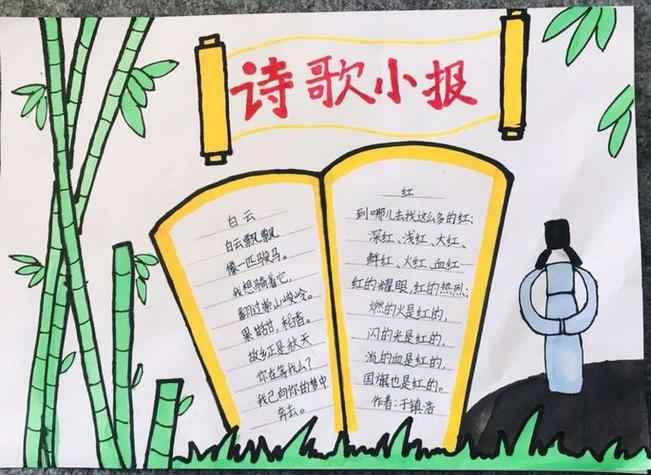 诗歌小报
白云
白云飘飘,
像一匹骏马。
我想骑着它,
翻过崇山峻岭。
果姑甜,稻香。
故乡正是秋天
你在等我么?
我已向你的梦中
奔去。
红
到哪儿去找这么多的红:
深红、浅红、大红、
鲜红、火红、血红…
红的耀眼,红的热烈:
燃的火是红的,
闪的光是红的,
流的血是红的,
国旗也是红的。
作者:于镇洛